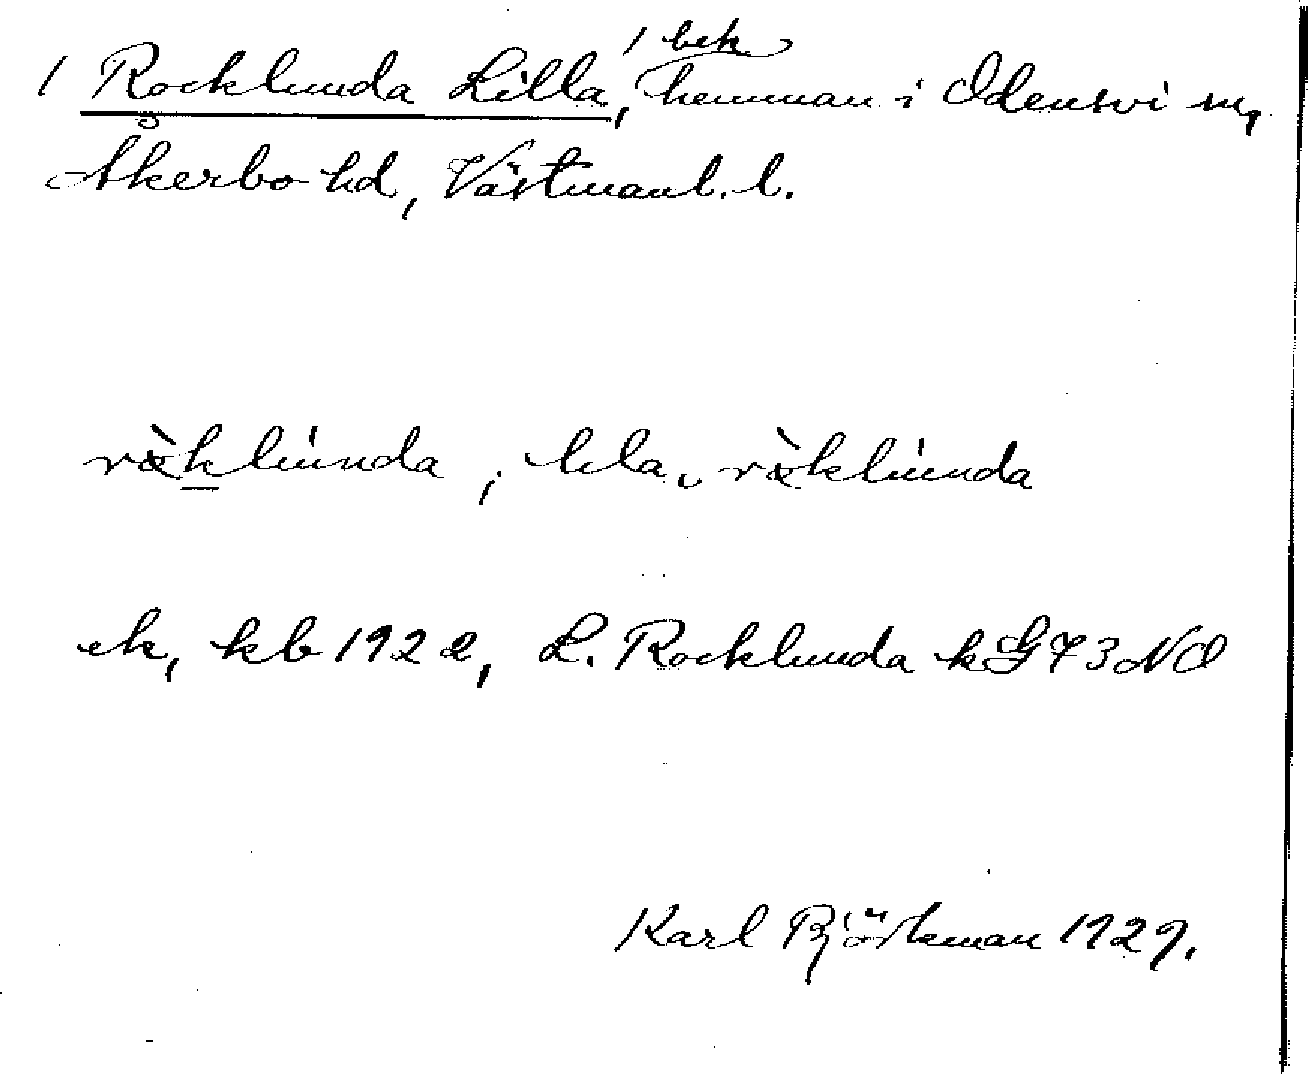 1 Rocklunda Lilla, 1 bek hemman i Odensvi sn,
Åkerbo hd, Västmanl. l.
rɔ̀klúnda, lila rɔ̀klúnda
ek, kb 1922, L. Rocklunda k G 73 NO
Karl Björkman 1929.